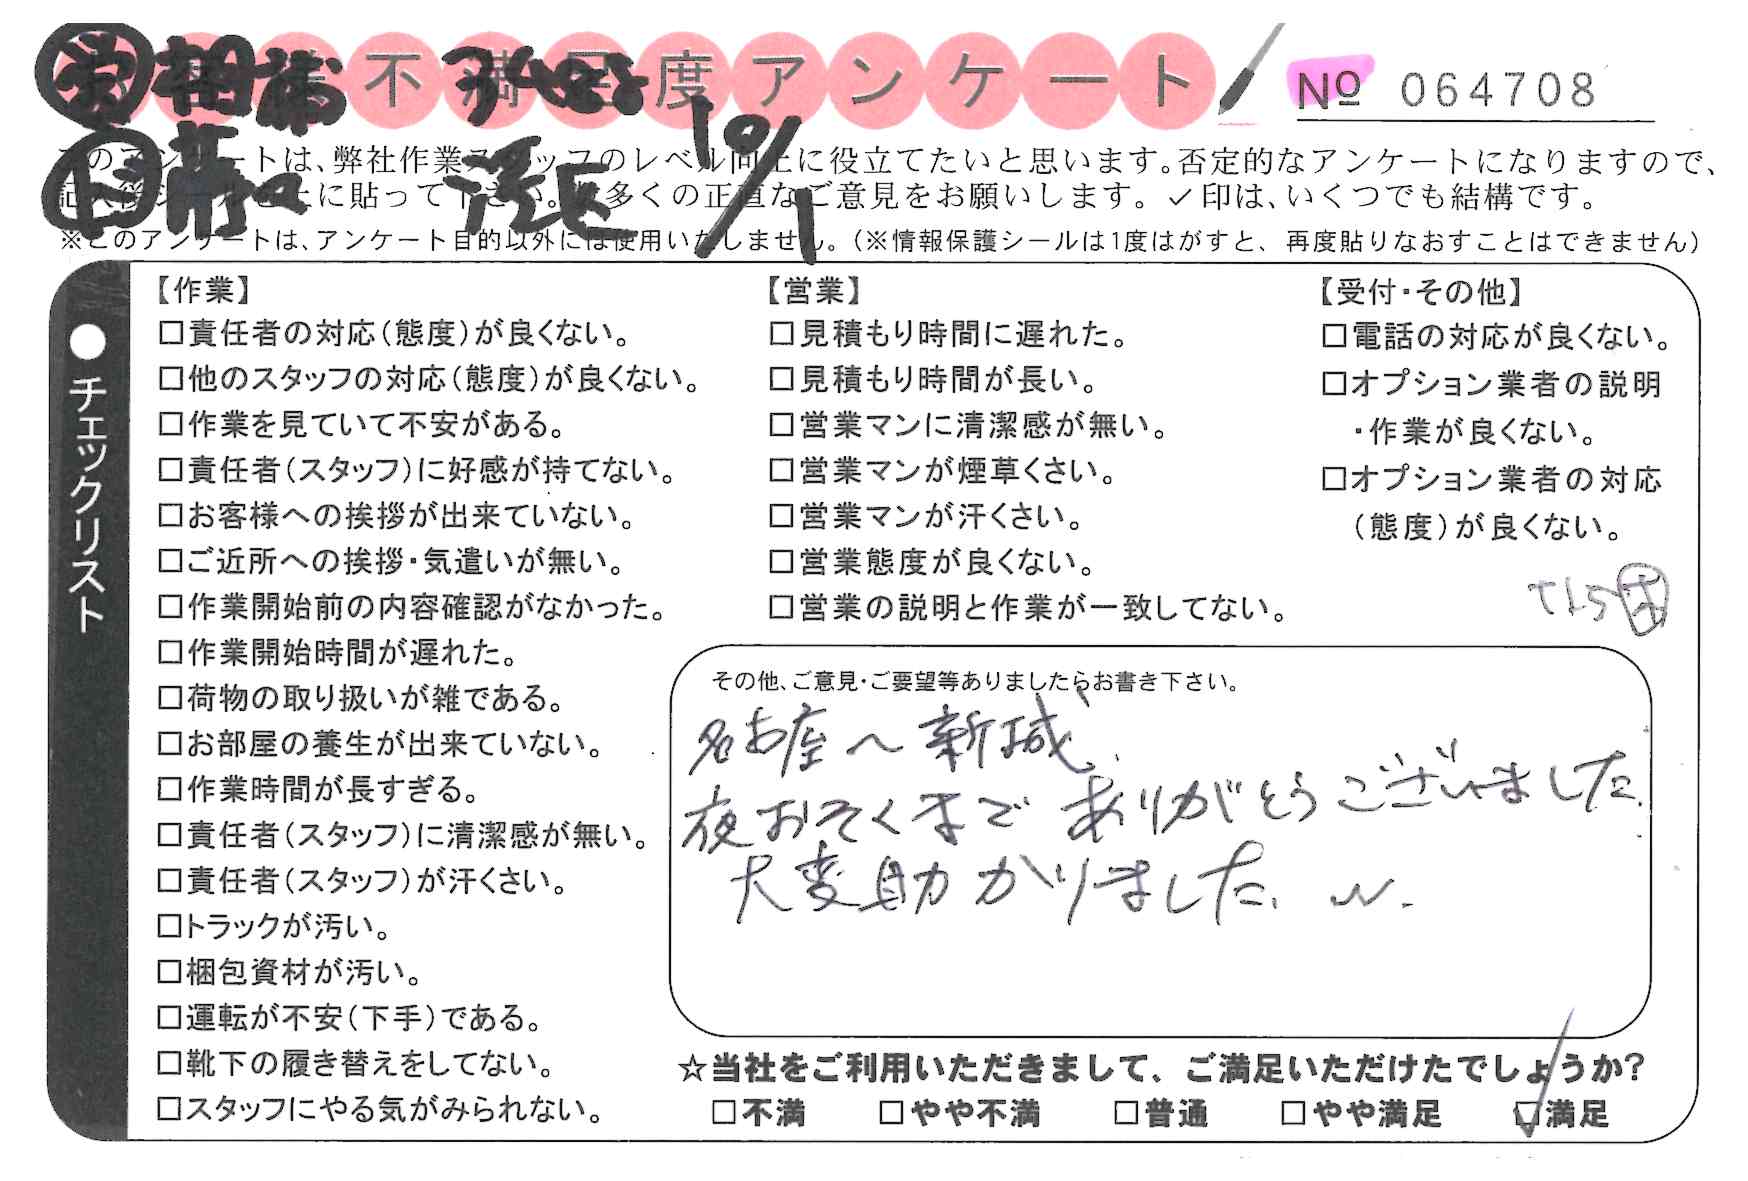 不満足度アンケート
№ 064708
10/1
このアンケートは、弊社作業スタッフのレベル向上に役立てたいと思います。否定的なアンケートになりますので、
記入後シールを上に貼って下さい。数多くの正直なご意見をお願いします。✓印は、いくつでも結構です。
※このアンケートは、アンケート目的以外には使用いたしません。（※情報保護シールは1度はがすと、再度貼りなおすことはできません）
●チェックリスト
【作業】
□責任者の対応（態度）が良くない。
□他のスタッフの対応（態度）が良くない。
□作業を見ていて不安がある。
□責任者（スタッフ）に好感が持てない。
□お客様への挨拶が出来ていない。
□ご近所への挨拶・気遣いが無い。
□作業開始前の内容確認がなかった。
□作業開始時間が遅れた。
□荷物の取り扱いが雑である。
□お部屋の養生が出来ていない。
□作業時間が長すぎる。
□責任者（スタッフ）に清潔感が無い。
□責任者（スタッフ）が汗くさい。
□トラックが汚い。
□梱包資材が汚い。
□運転が不安（下手）である。
□靴下の履き替えをしてない。
□スタッフにやる気がみられない。
【営業】
□見積もり時間に遅れた。
□見積もり時間が長い。
□営業マンに清潔感が無い。
□営業マンが煙草くさい。
□営業マンが汗くさい。
□営業態度が良くない。
□営業の説明と作業が一致してない。
【受付・その他】
□電話の対応が良くない。
□オプション業者の説明
・作業が良くない。
□オプション業者の対応
（態度）が良くない。
その他、ご意見・ご要望等ありましたらお書き下さい。
名古屋〜新城、
夜おそくまで ありがとうございました.
大変助かりました.
☆当社をご利用いただきまして、ご満足いただけたでしょうか?
□不満 □やや不満 □普通 □やや満足 ☑満足